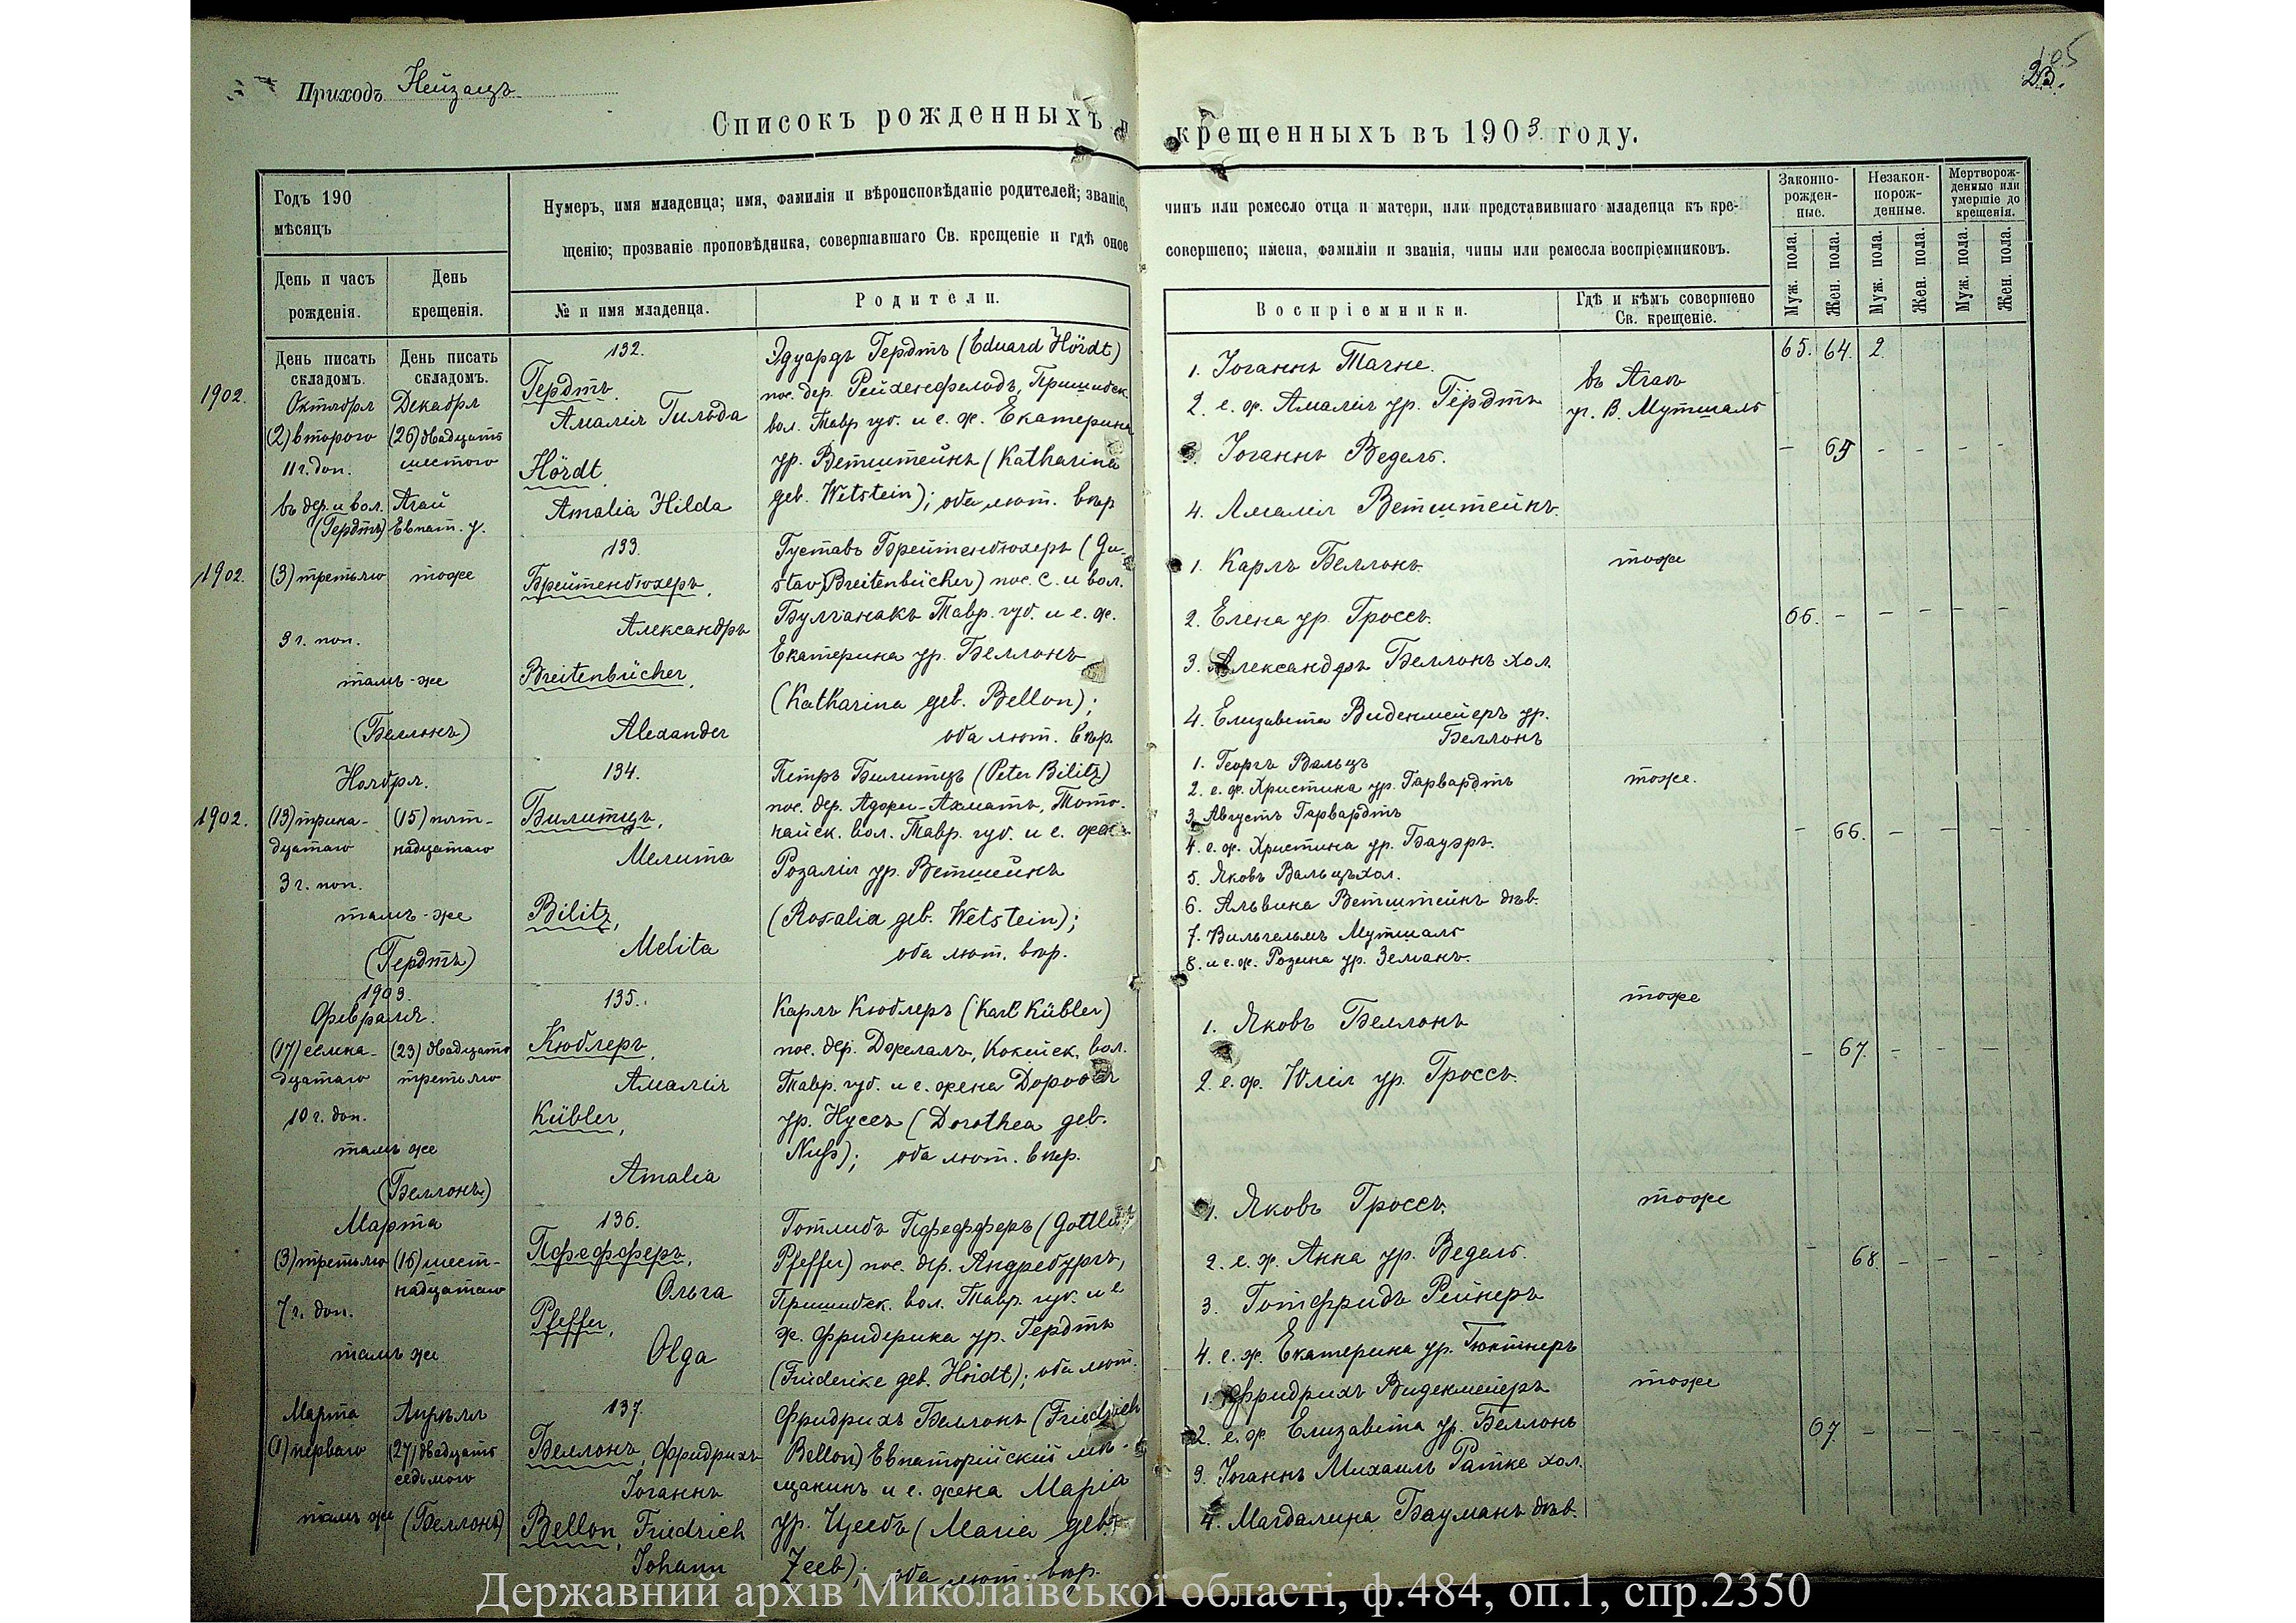 Приходъ Нейзацъ
Списокъ рожденныхъ и крещенныхъ въ 1903 году.
Годъ 190
мѣсяцъ
День и часъ
рожденія.
День
крещенія.
Нумеръ, имя младенца; имя, фамилія и вѣроисповѣданіе родителей; званіе,
щенію; прозваніе проповѣдника, совершавшаго Св. крещеніе и гдѣ оное
№ и имя младенца.
Родители.
чинъ или ремесло отца и матери, или представившаго младенца къ кре-
совершено; имена, фамиліи и званія, чины или ремесла воспріемниковъ.
Воспріемники.
Гдѣ и кѣмъ совершено
Св. крещеніе.
Законно-
рожден-
ные.
Незакон-
норож-
денные.
Мертворож-
денные или
умершіе до
крещенія.
Муж. пола.
Жен. пола.
Муж. пола.
Жен. пола.
Муж. пола.
Жен. пола.
День писать
складомъ.
День писать
складомъ.
65. 64. 2.
1902.
Октября
(2) второго
11 г. доп.
въ дер. и вол.
(Гердтъ)
Декабря
(26) двадцать
шестого
Агай
Евпат. у.
132.
Гердтъ,
Амалія Гильда
Hördt,
Amalia Hilda
Эдуардъ Гердтъ (Eduard Hördt)
пос. дер. Рейхенфельдъ, Пришибск.
вол. Тавр. губ. и е. ж. Екатерина
ур. Ветштейнъ (Katharina
geb. Wetstein); оба лют. вѣр.
1. Іоганнъ Тачне.
2. е. ж. Амалія ур. Гердтъ
3. Іоганнъ Ведель.
4. Амалія Ветштейнъ.
въ Агаѣ
уч. В. Мутшалъ
- 65 - - - -
1902.
(3) третьяго
3 г. поп.
тамъ-же
(Беллонъ)
тоже
133.
Брейтенбюхеръ,
Александръ
Breitenbücher,
Alexander
Густавъ Брейтенбюхеръ (Gu-
stav Breitenbücher) пос. с. и вол.
Булганакъ Тавр. губ. и е. ж.
Екатерина ур. Беллонъ
(Katharina geb. Bellon);
оба лют. вѣр.
1. Карлъ Беллонъ.
2. Елена ур. Гроссъ.
3. Александръ Беллонъ хол.
4. Елизавета Виденмейеръ ур.
Беллонъ
тоже
66. - - - - -
Ноября.
1902.
(13) трина-
дцатаго
3 г. поп.
тамъ-же
(Гердтъ)
(15) пят-
надцатаго
134.
Билитцъ,
Мелита
Bilitz,
Melita
Петръ Билитцъ (Peter Bilitz)
пос. дер. Аджи-Ахматъ, Тото-
найск. вол. Тавр. губ. и е. жена
Розалія ур. Ветштейнъ
(Rosalia geb. Wetstein);
оба лют. вѣр.
1. Георгъ Вальцъ
2. е. ж. Христина ур. Гарвардтъ
3. Августъ Гарвардтъ
4. е. ж. Христина ур. Бауэръ.
5. Яковъ Вальцъ хол.
6. Альвина Ветштейнъ дѣв.
7. Вильгельмъ Мутшалъ
8. и е. ж. Розина ур. Земанъ.
тоже.
- 66. - - - -
1903.
Февраля.
(17) семна-
дцатаго
10 г. доп.
тамъ же
(Беллонъ)
(23) двадцать
третьяго
135.
Кюблеръ,
Амалія
Kübler,
Amalia
Карлъ Кюблеръ (Karl Kübler)
пос. дер. Джелалъ, Кокейск. вол.
Тавр. губ. и е. жена Доротея
ур. Нуссъ (Dorothea geb.
Nuß); оба лют. вѣр.
1. Яковъ Беллонъ
2. е. ж. Юлія ур. Гроссъ.
тоже
- 67. - - - -
Марта
(3) третьяго
7 г. доп.
тамъ же
(16) шест-
надцатаго
136.
Пфефферъ,
Ольга
Pfeffer,
Olga
Готлибъ Пфефферъ (Gottlieb
Pfeffer) пос. дер. Андребургъ,
Пришибск. вол. Тавр. губ. и е
ж. Фридерика ур. Гердтъ
(Friederike geb. Hördt); оба лют.
1. Яковъ Гроссъ.
2. е. ж. Анна ур. Ведель.
3. Готфридъ Рейнеръ
4. е. ж. Екатерина ур. Гюнтнеръ
тоже
- 68. - - - -
Марта
(1) перваго
тамъ же
Апрѣля
(27) двадцать
седьмого
(Беллонъ)
137.
Беллонъ, Фридрихъ
Іоганнъ
Bellon, Friedrich
Johann
Фридрихъ Беллонъ (Friedrich
Bellon) Евпаторійскій мѣ-
щанинъ и е. жена Марія
ур. Цеебъ (Maria geb.
Zeeb); оба лют. вѣр.
1. Фридрихъ Виденмейеръ
2. е. ж. Елизавета ур. Беллонъ
3. Іоганнъ Михаилъ Ратке хол.
4. Магдалина Бауманъ дѣв.
тоже
67 - - - - -
Державний архів Миколаївської області, ф.484, оп.1, спр.2350